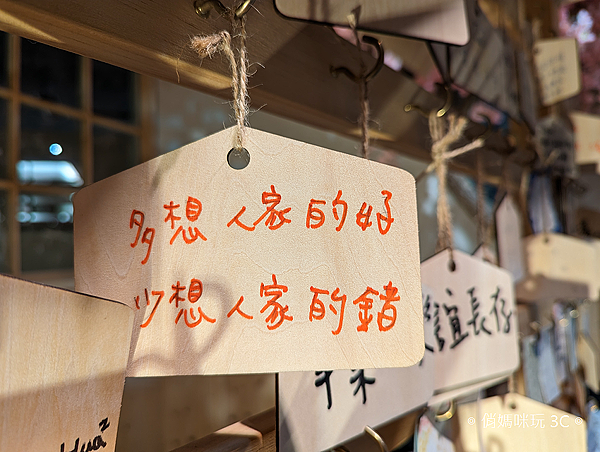 多想人家的好
少想人家的錯
誼長存
俏媽咪玩 3C